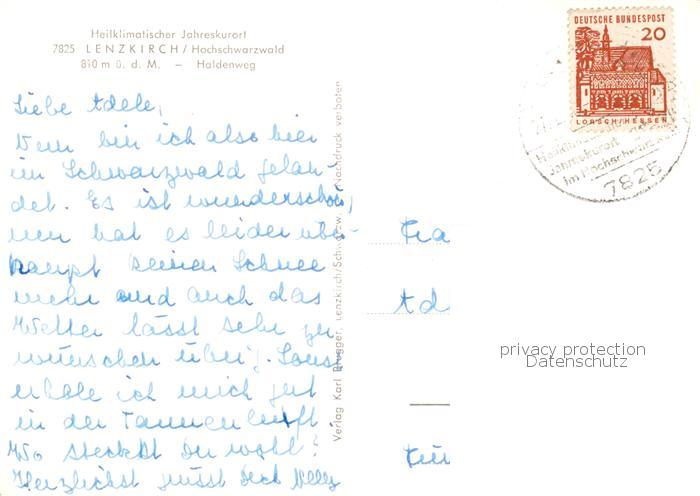 Heilklimatischer Jahreskurort
7825 LENZKIRCH/Hochschwarzwald
810 m ü. d. M. – Haldenweg
Liebe Adele,
Nun bin ich also hier
im Schwarzwald gelan-
det. Es ist wunderschön,
nur hat es leider über-
haupt keinen Schnee
mehr und auch das
Wetter lässt sehr zu
wünschen übrig. Sonst
erhole ich mich gut
in der Tannenluft.
Wo steckst Du wohl?
Herzlichst grüsst Dich Nelly
Verlag Karl Brugger, Lenzkirch/Schwarzw. Nachdruck verboten
DEUTSCHE BUNDESPOST
20
LORSCH/HESSEN
Jahreskurort
im Hochschwarzwald
7825
Fra
Ade
privacy protection
Datenschutz